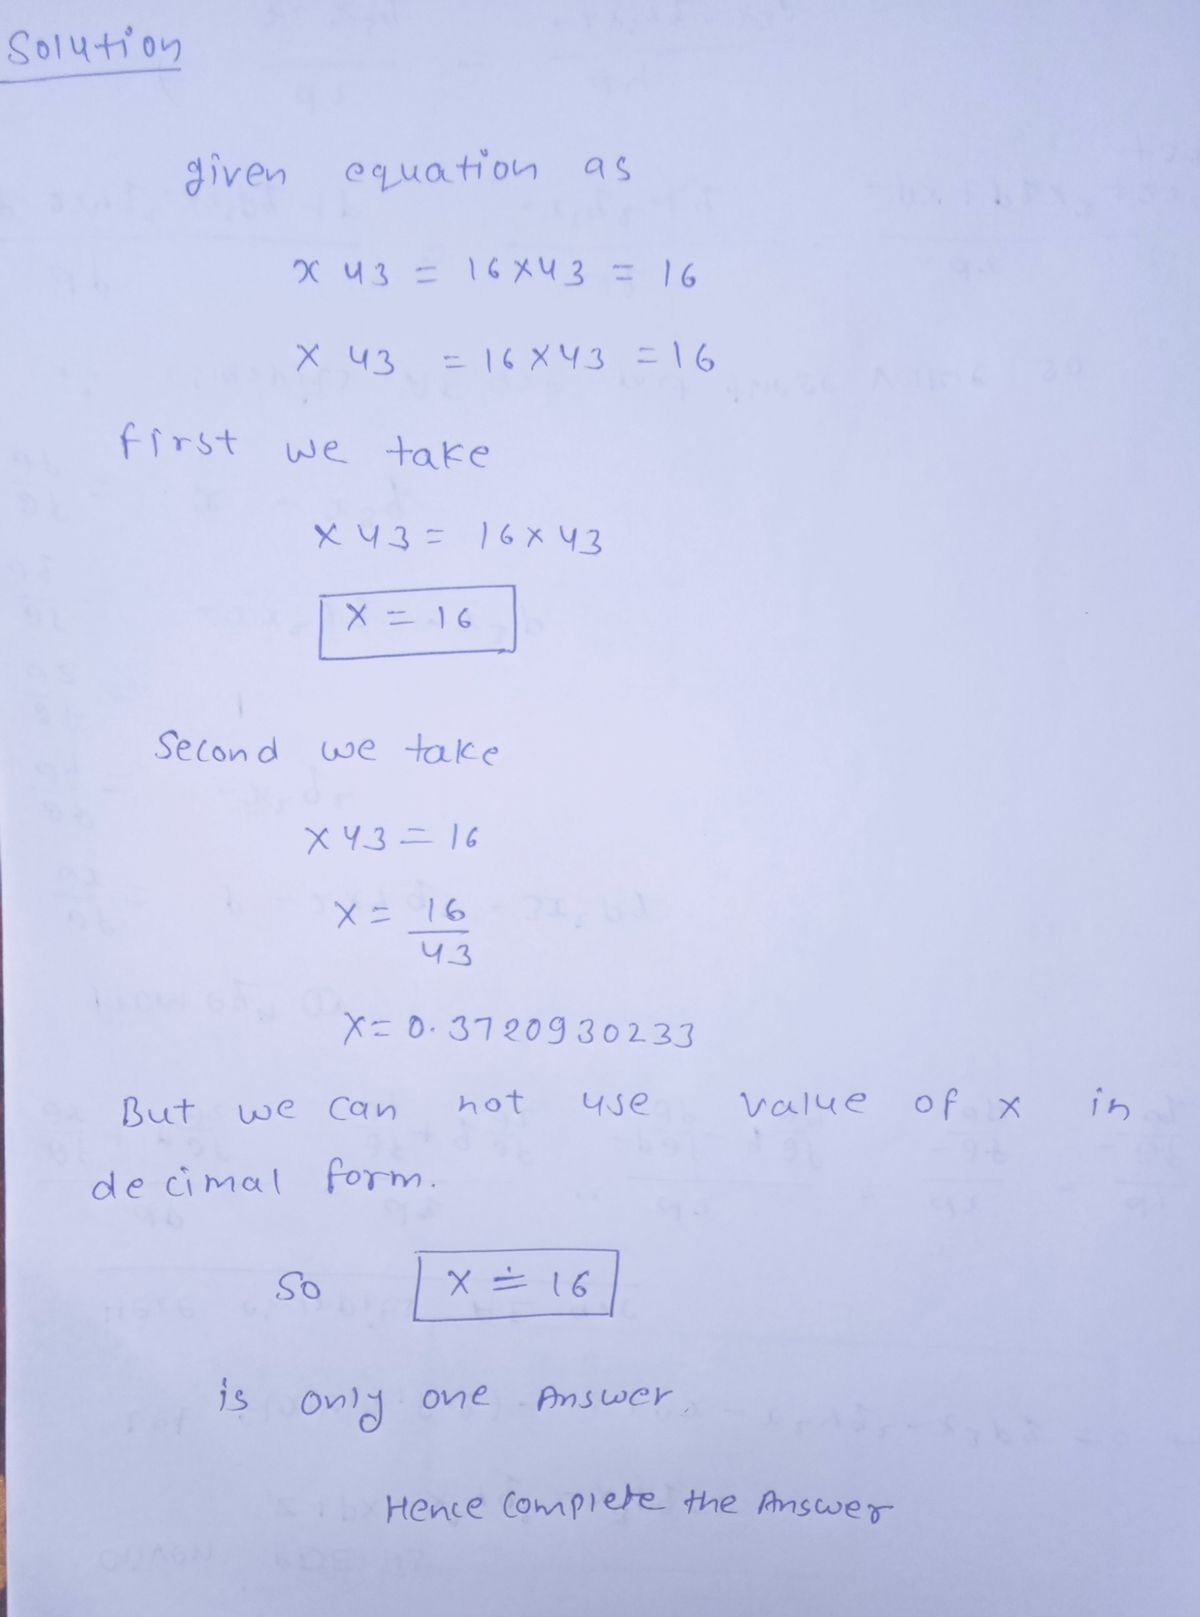 Solution
given equation as
x 43 = 16 x 43 = 16
x 43 = 16 x 43 = 16
first we take
x 43 = 16 x 43
x = 16
Second we take
x 43 = 16
x = 16
43
x = 0.3720930233
But we can not use value of x in
decimal form.
So x = 16
is only one Answer.
Hence Complete the Answer